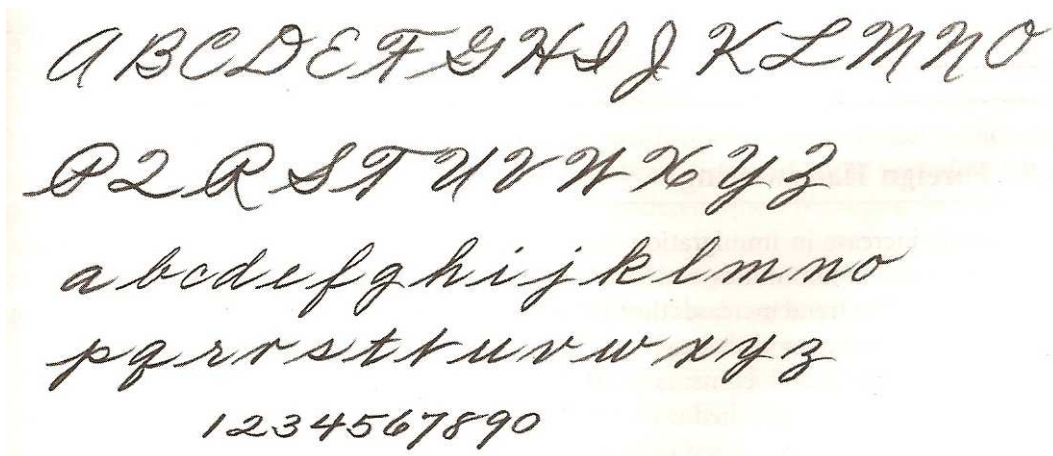 A B C D E F G H I J K L M N O
P Q R S T U V W X Y Z
a b c d e f g h i j k l m n o
p q r r s t t u v w x y z
1 2 3 4 5 6 7 8 9 0